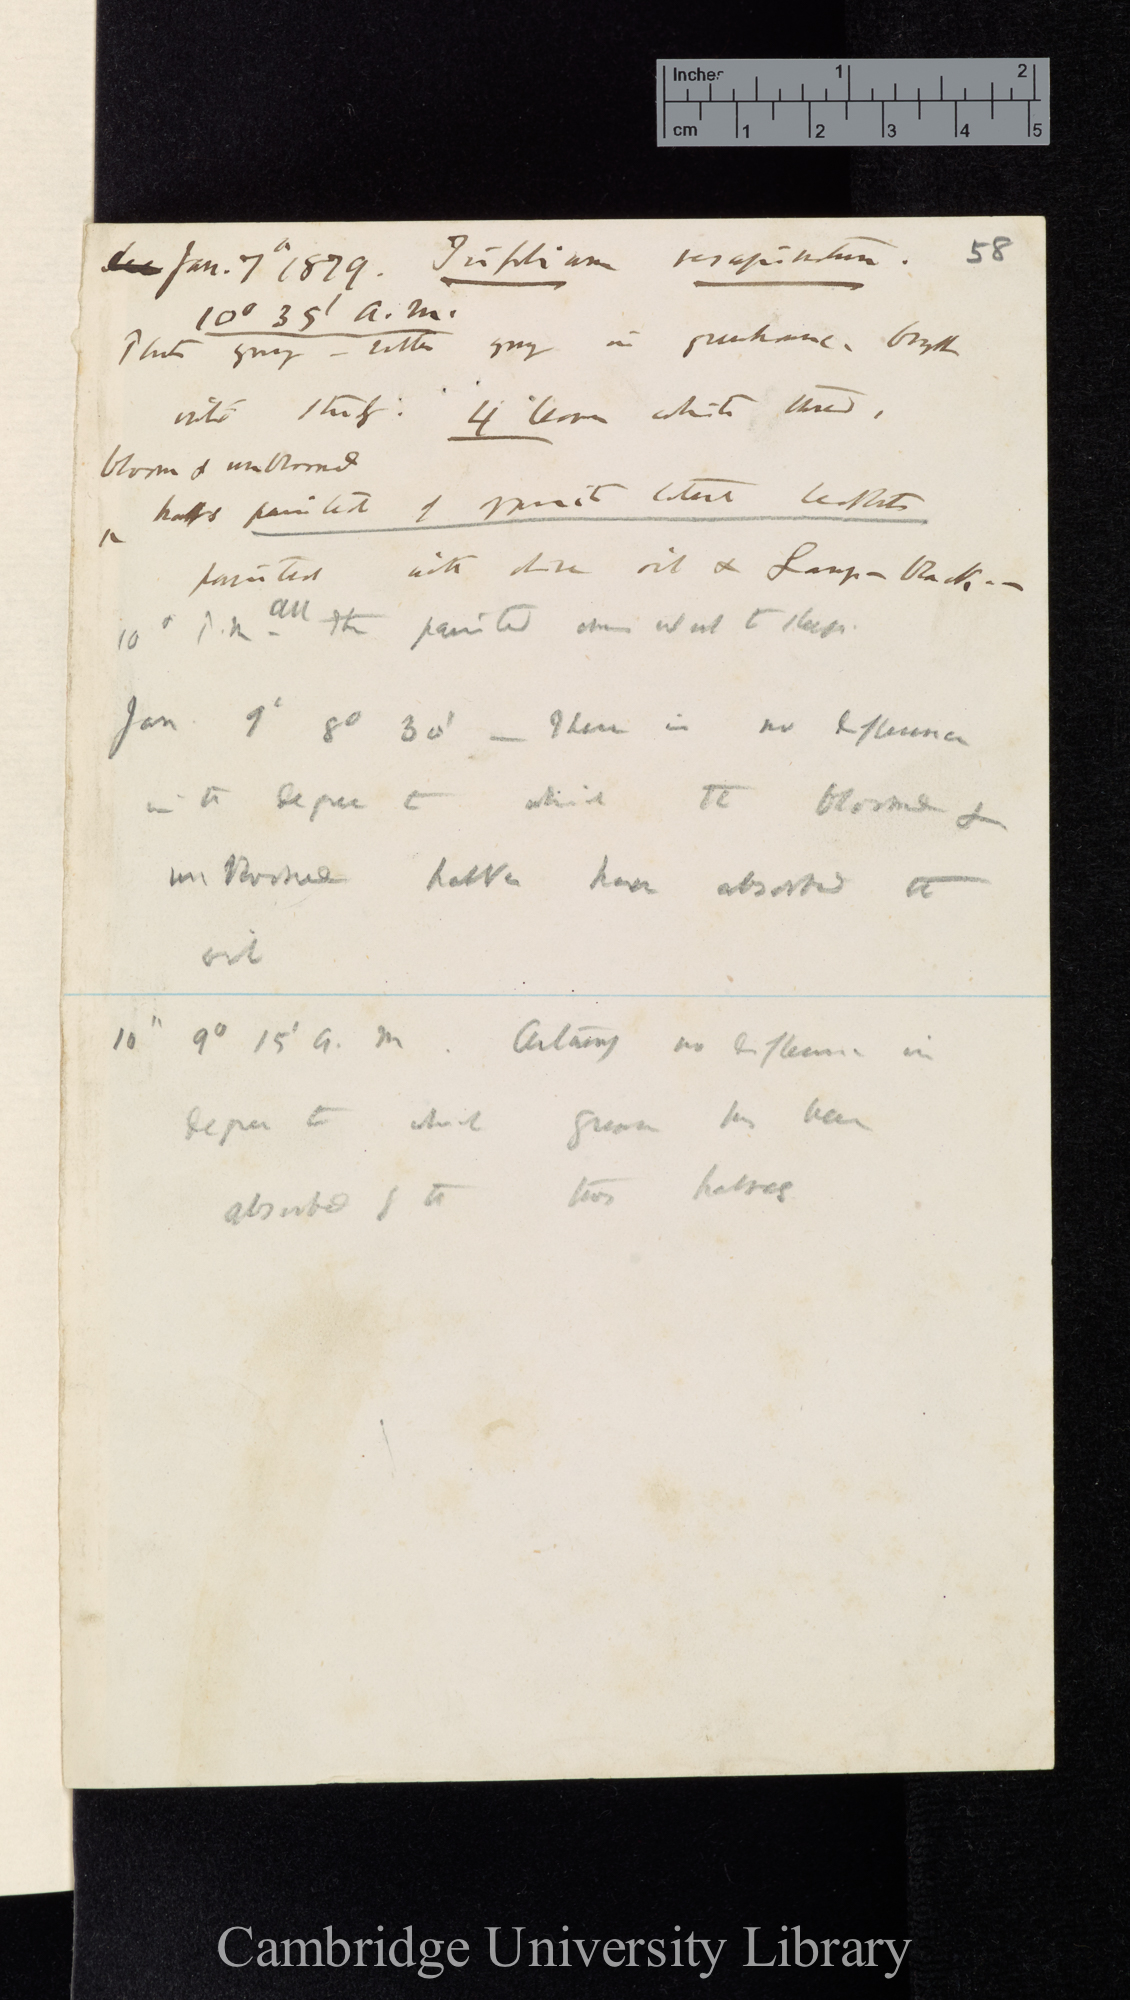 Inches 1 2
cm 1 2 3 4 5
58
Jan. 7th 1879. Trifolium resupinatum.
10° 35' a.m.
Plants young – rather young in greenhouse, brought
into Study: 4 leaves white thread,
bloomed & unbloomed
^ halves painted of opposite lateral leaflets
painted with olive oil & Lamp-black.—
10° P.m. all the painted ones went to sleep.
Jan 9th 8° 30' — There is no difference
in the degree to which the bloomed &
unbloomed halves have absorbed the
oil
10th 9° 15' a. m. Certainly no difference in
degree to which grease has been
absorbed by the two halves
Cambridge University Library